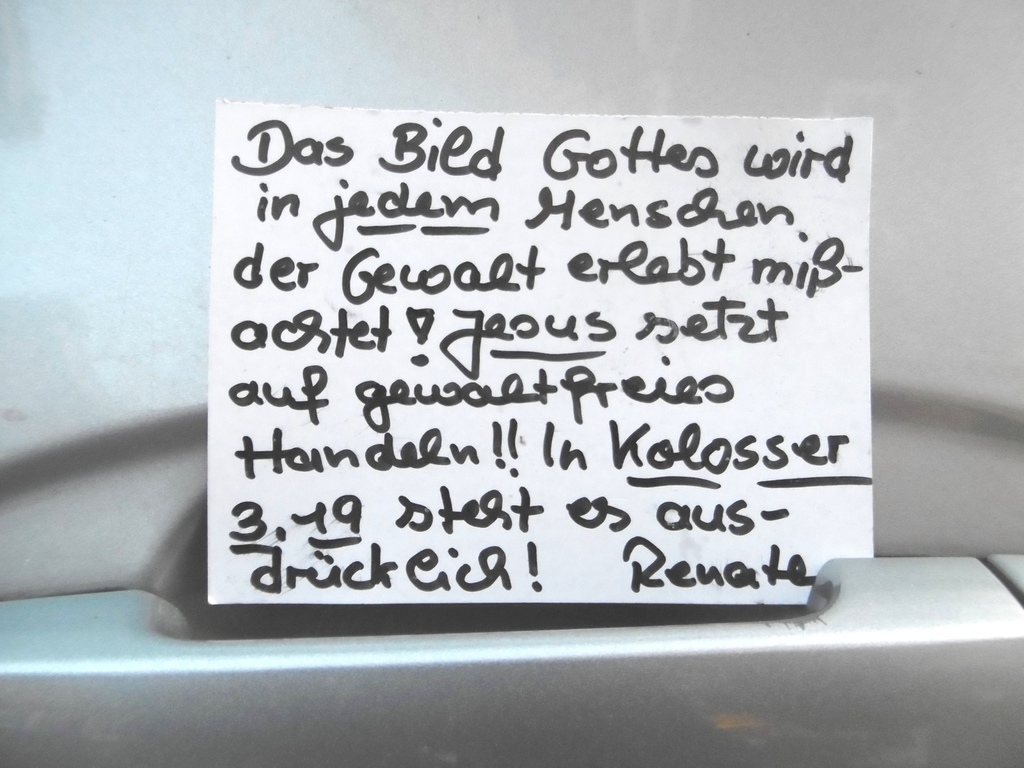 Das Bild Gottes wird
in jedem Menschen
der Gewalt erlebt miß-
achtet! Jesus setzt
auf gewaltfreies
Handeln!! In Kolosser
3.19 steht es aus-
drücklich! Renate